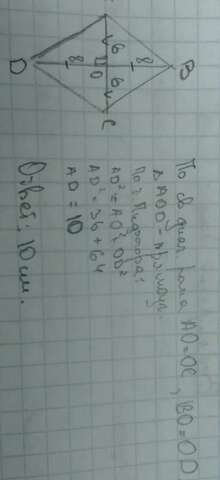 D
8
O
6
6
8
B
C
По св диаг ромба AO=OC, BO=OD
Δ AOD - прямоуг.
По т. Пифагора:
AD² = AO² + OD²
AD² = 36 + 64
AD = 10
Ответ: 10 см.